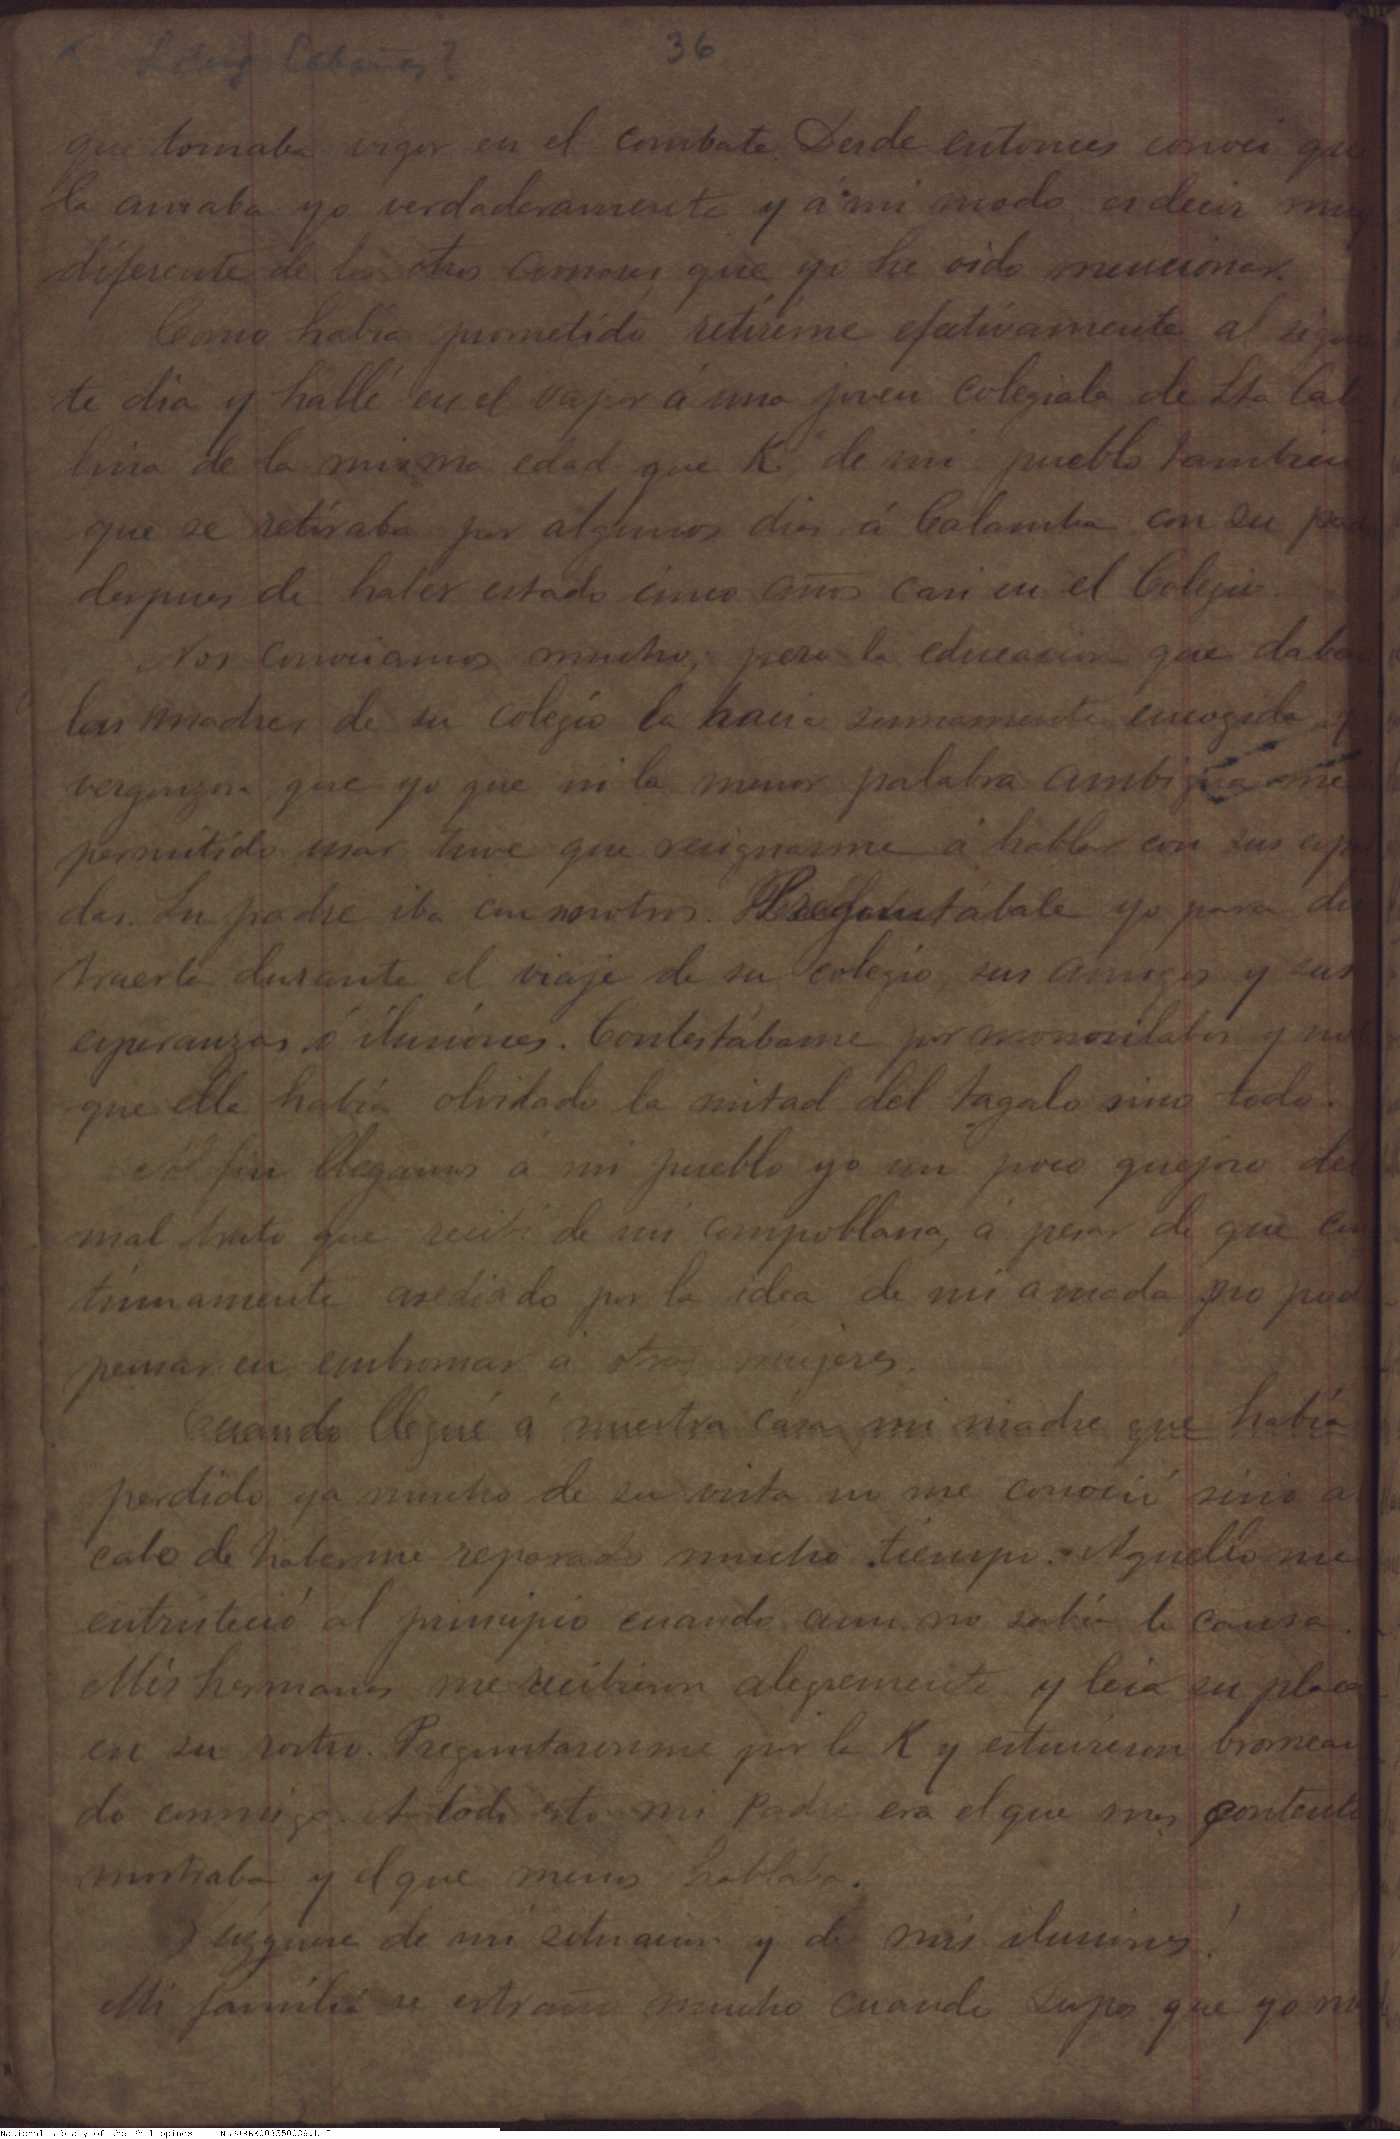 36
que tomaba vigor en el combate. Desde entonces conocí que
la amaba yo verdaderamente y á mi modo, es decir muy
diferente de los otros amores que yo he oido mencionar.
Como había prometido retiréme efectivamente al siguien
te dia y hallé en el vapor á una joven colegiala de Sta Cata
lina de la misma edad que K, de mi pueblo tambien
que se retiraba por algunos dias á Calamba con su padre
despues de haber estado cinco años casi en el Colegio.
Nos conociamos mucho, pero la educacion que daban
las madres de su colegio la hacia sumamente encogida y
vergonzosa que yo que ni la menor palabra ambigua me
permitido usar tuve que resignarme á hablar con sus espal
das. Su padre iba con nosotros. Preguntábale yo para dis
traerla durante el viaje de su colegio, sus amigas y sus
esperanzas ó ilusiones. Contestábame por monosílabos y
que ella había olvidado la mitad del tagalo sino todo.
Al fin llegamos á mi pueblo yo un poco quejoso del
mal trato que recibí de mi compoblana, á pesar de que con
tinuamente asediado por la idea de mi amada no podía
pensar en embromar á otras mujeres.
Cuando llegué á nuestra casa mi madre que había
perdido ya mucho de su vista no me conoció sino al
cabo de haberme reparado mucho tiempo. Aquello me
entristeció al principio cuando aun no sabía la causa.
Mis hermanas me recibieron alegremente y leia su placer
en su rostro. Preguntaronme por la K y estuvieron bromean
do conmigo. A todo esto mi Padre era el que mas contento
mostraba y el que menos hablaba.
Júzguese de mi situacion y de mis ilusiones!
Mi familia se estrañó mucho cuando supo que yo